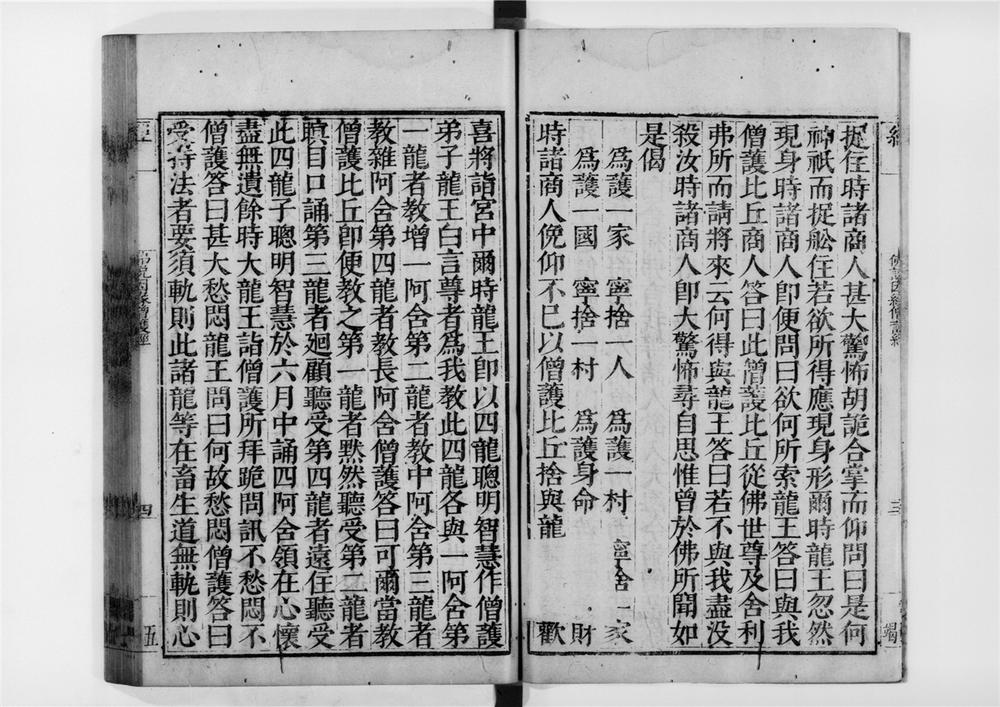 捉住時諸商人甚大驚怖胡詭合掌而仰問曰是何
神祇而捉舩住若欲所得應現身形爾時龍王忽然
現身時諸商人卽便問曰欲何所索龍王答曰與我
僧護比丘商人答曰此僧護比丘從佛世尊及舍利
弗所而請將來云何得與龍王答曰若不與我盡没
殺汝時諸商人卽大驚怖尋自思惟曾於佛所聞如
是偈
爲護一家 寧捨一人 爲護一村 寧捨一家
爲護一國 寧捨一村 爲護身命 財
時諸商人俛仰不已以僧護比丘捨與龍 歡
喜將詣宮中爾時龍王卽以四龍聰明智慧作僧護
弟子龍王白言尊者爲我教此四龍各與一阿舍第
一龍者教增一阿舍第二龍者教中阿舍第三龍者
教雜阿舍第四龍者教長阿舍僧護答曰可爾當教
僧護比丘卽便教之第一龍者默然聽受第二龍者
瞋目口誦第三龍者廻顧聽受第四龍者遠住聽受
此四龍子聰明智慧於六月中誦四阿舍領在心懷
盡無遺餘時大龍王詣僧護所拜跪問訊不愁悶不
僧護答曰甚大愁悶龍王問曰何故愁悶僧護答曰
受持法者要須軌則此諸龍等在畜生道無軌則心
四
五